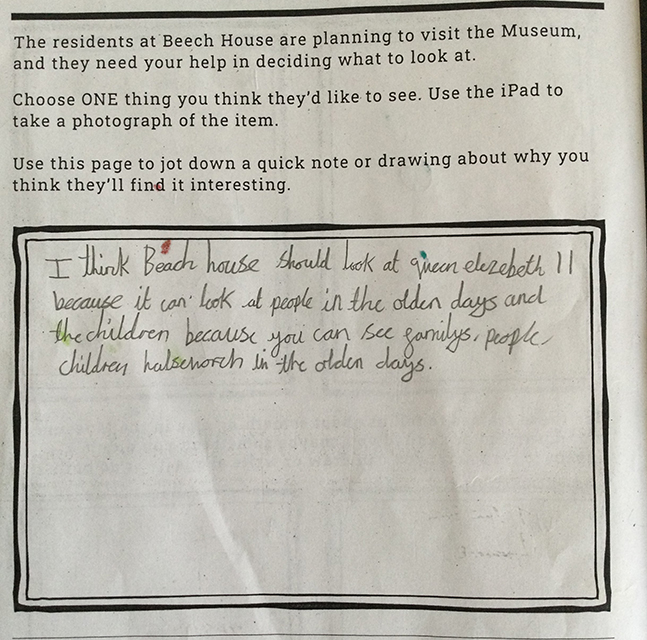 The residents at Beech House are planning to visit the Museum,
and they need your help in deciding what to look at.
Choose ONE thing you think they'd like to see. Use the iPad to
take a photograph of the item.
Use this page to jot down a quick note or drawing about why you
think they'll find it interesting.
I think Beach house should look at queen elezebeth II
because it can look at people in the olden days and
the children because you can see familys, people,
children halseworch in the olden days.